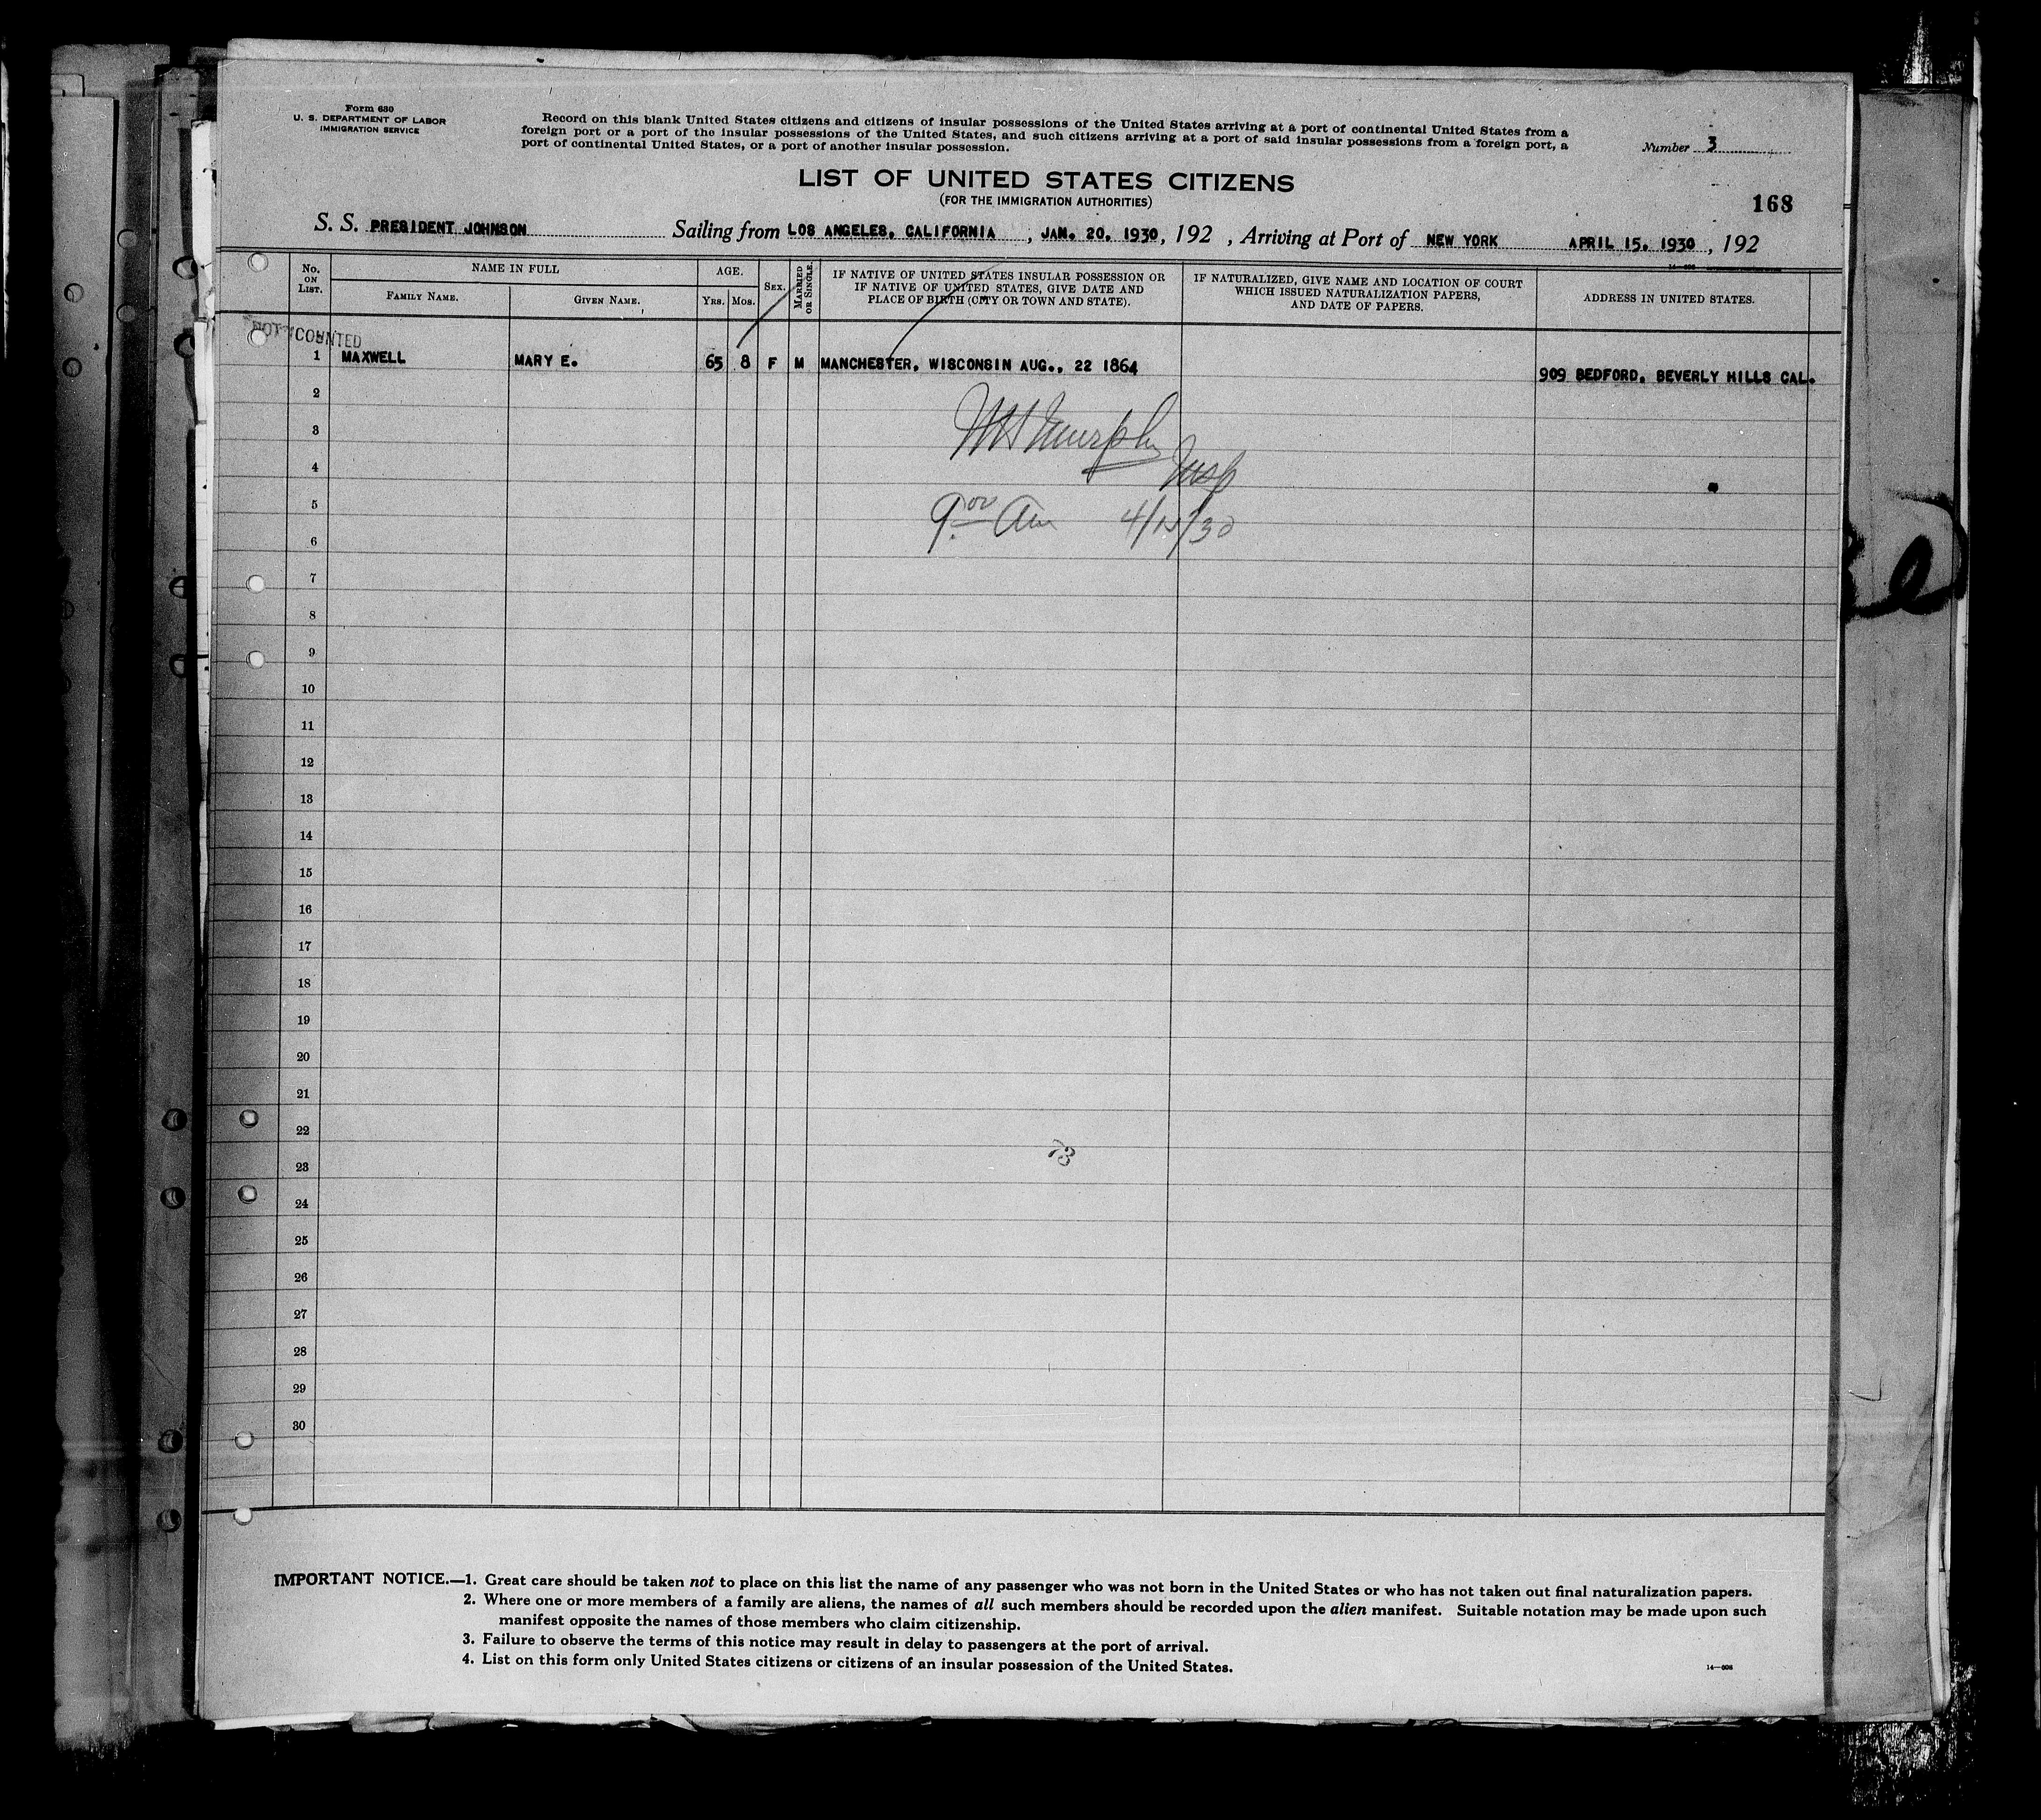 Form 630
U. S. DEPARTMENT OF LABOR
IMMIGRATION SERVICE
Record on this blank United States citizens and citizens of insular possessions of the United States arriving at a port of continental United States from a
foreign port or a port of the insular possessions of the United States, and such citizens arriving at a port of said insular possessions from a foreign port, a
port of continental United States, or a port of another insular possession.
Number 3
LIST OF UNITED STATES CITIZENS
(FOR THE IMMIGRATION AUTHORITIES)
168
S. S. PRESIDENT JOHNSON Sailing from LOS ANGELES, CALIFORNIA, JAN. 20, 1930, 192 , Arriving at Port of NEW YORK APRIL 15, 1930, 192
No. ON LIST.
NAME IN FULL
FAMILY NAME.
GIVEN NAME.
AGE.
YRS.
MOS.
SEX.
MARRIED OR SINGLE.
IF NATIVE OF UNITED STATES INSULAR POSSESSION OR
IF NATIVE OF UNITED STATES, GIVE DATE AND
PLACE OF BIRTH (CITY OR TOWN AND STATE).
IF NATURALIZED, GIVE NAME AND LOCATION OF COURT
WHICH ISSUED NATURALIZATION PAPERS,
AND DATE OF PAPERS.
ADDRESS IN UNITED STATES.
NOT COUNTED
1 MAXWELL MARY E. 65 8 F M MANCHESTER, WISCONSIN AUG., 22 1864 909 BEDFORD, BEVERLY HILLS CAL.
2
3 Murphy
4 Insp
5 9.00 Am 4/15/30
6
7
8
9
10
11
12
13
14
15
16
17
18
19
20
21
22
23
24
25
26
27
28
29
30
IMPORTANT NOTICE.—1. Great care should be taken not to place on this list the name of any passenger who was not born in the United States or who has not taken out final naturalization papers.
2. Where one or more members of a family are aliens, the names of all such members should be recorded upon the alien manifest. Suitable notation may be made upon such
manifest opposite the names of those members who claim citizenship.
3. Failure to observe the terms of this notice may result in delay to passengers at the port of arrival.
4. List on this form only United States citizens or citizens of an insular possession of the United States.